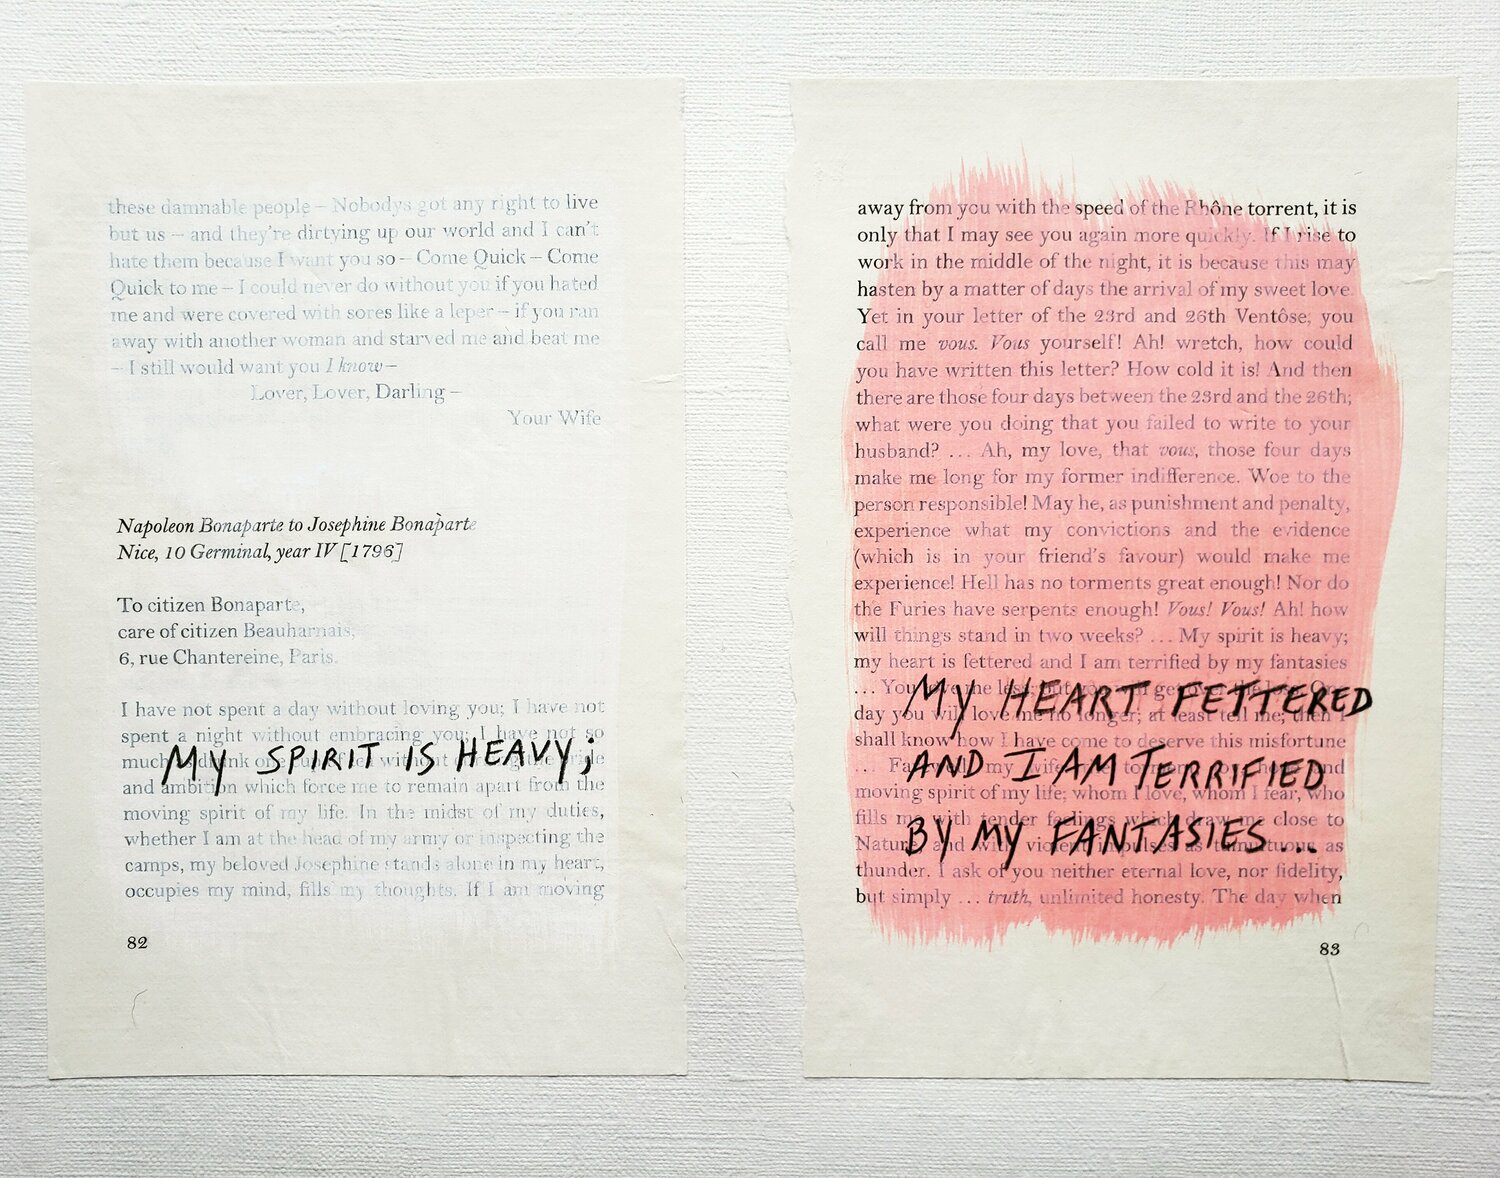 these damnable people – Nobodys got any right to live
but us – and they're dirtying up our world and I can't
hate them because I want you so – Come Quick – Come
Quick to me – I could never do without you if you hated
me and were covered with sores like a leper – if you ran
away with another woman and starved me and beat me
– I still would want you I know –
Lover, Lover, Darling –
Your Wife
Napoleon Bonaparte to Josephine Bonaparte
Nice, 10 Germinal, year IV [1796]
To citizen Bonaparte,
care of citizen Beauharnais,
6, rue Chantereine, Paris.
I have not spent a day without loving you; I have not
spent a night without embracing you; I have not so
much
MY SPIRIT IS HEAVY;
and ambition which force me to remain apart from the
moving spirit of my life. In the midst of my duties,
whether I am at the head of my army or inspecting the
camps, my beloved Josephine stands alone in my heart,
occupies my mind, fills my thoughts. If I am moving
82
away from you with the speed of the Rhône torrent, it is
only that I may see you again more quickly. If I rise to
work in the middle of the night, it is because this may
hasten by a matter of days the arrival of my sweet love.
Yet in your letter of the 23rd and 26th Ventôse, you
call me vous. Vous yourself! Ah! wretch, how could
you have written this letter? How cold it is! And then
there are those four days between the 23rd and the 26th;
what were you doing that you failed to write to your
husband? ... Ah, my love, that vous, those four days
make me long for my former indifference. Woe to the
person responsible! May he, as punishment and penalty,
experience what my convictions and the evidence
(which is in your friend's favour) would make me
experience! Hell has no torments great enough! Nor do
the Furies have serpents enough! Vous! Vous! Ah! how
will things stand in two weeks? ... My spirit is heavy;
my heart is fettered and I am terrified by my fantasies
... You love me less; but you will get over the loss. One
MY HEART FETTERED
day you will love me no longer; at least tell me; then I
shall know how I have come to deserve this misfortune
... Farewell, my wife
AND I AM TERRIFIED
moving spirit of my life; whom I love, whom I fear, who
fills me with tender feelings which draw me close to
BY MY FANTASIES...
Nature, and with violent impulses as tumultuous as
thunder. I ask of you neither eternal love, nor fidelity,
but simply ... truth, unlimited honesty. The day when
83